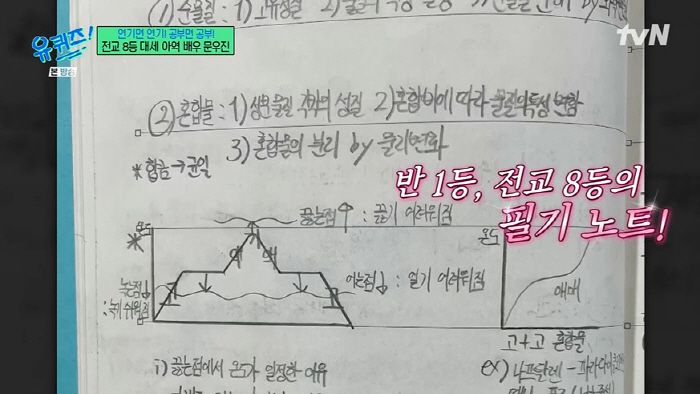 유퀴즈!
본 방송
연기면 연기! 공부면 공부!
전교 8등 대세 아역 배우 문우진
tvN
순물질 : 1) 고유성질 2) by
② 혼합물 : 1) 성분 물질 각각의 성질 2) 혼합비에 따라 물질의 특성 변함
3) 혼합물의 분리 by 물리변화
* 합금 → 균일
반 1등, 전교 8등의
필기 노트!
끓는점↑ : 끓기 어려워짐
온도
*
어는점↓ : 얼기 어려워짐
녹는점↓
: 녹기 쉬워짐
온도
애매
고+고 혼합물
i) 끓는점에서 온도가 일정한 이유
ex) 나프탈렌 -